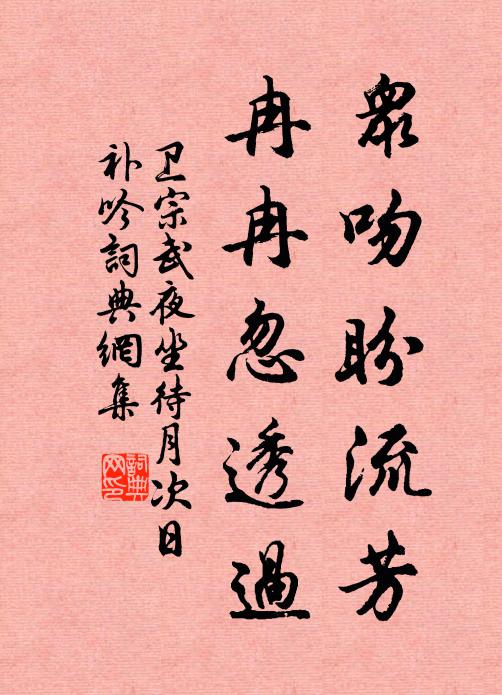 眾吻盼流芳
冉冉忽透過
卫宗武夜坐待月次日
补吟詞典網集
詞典网印